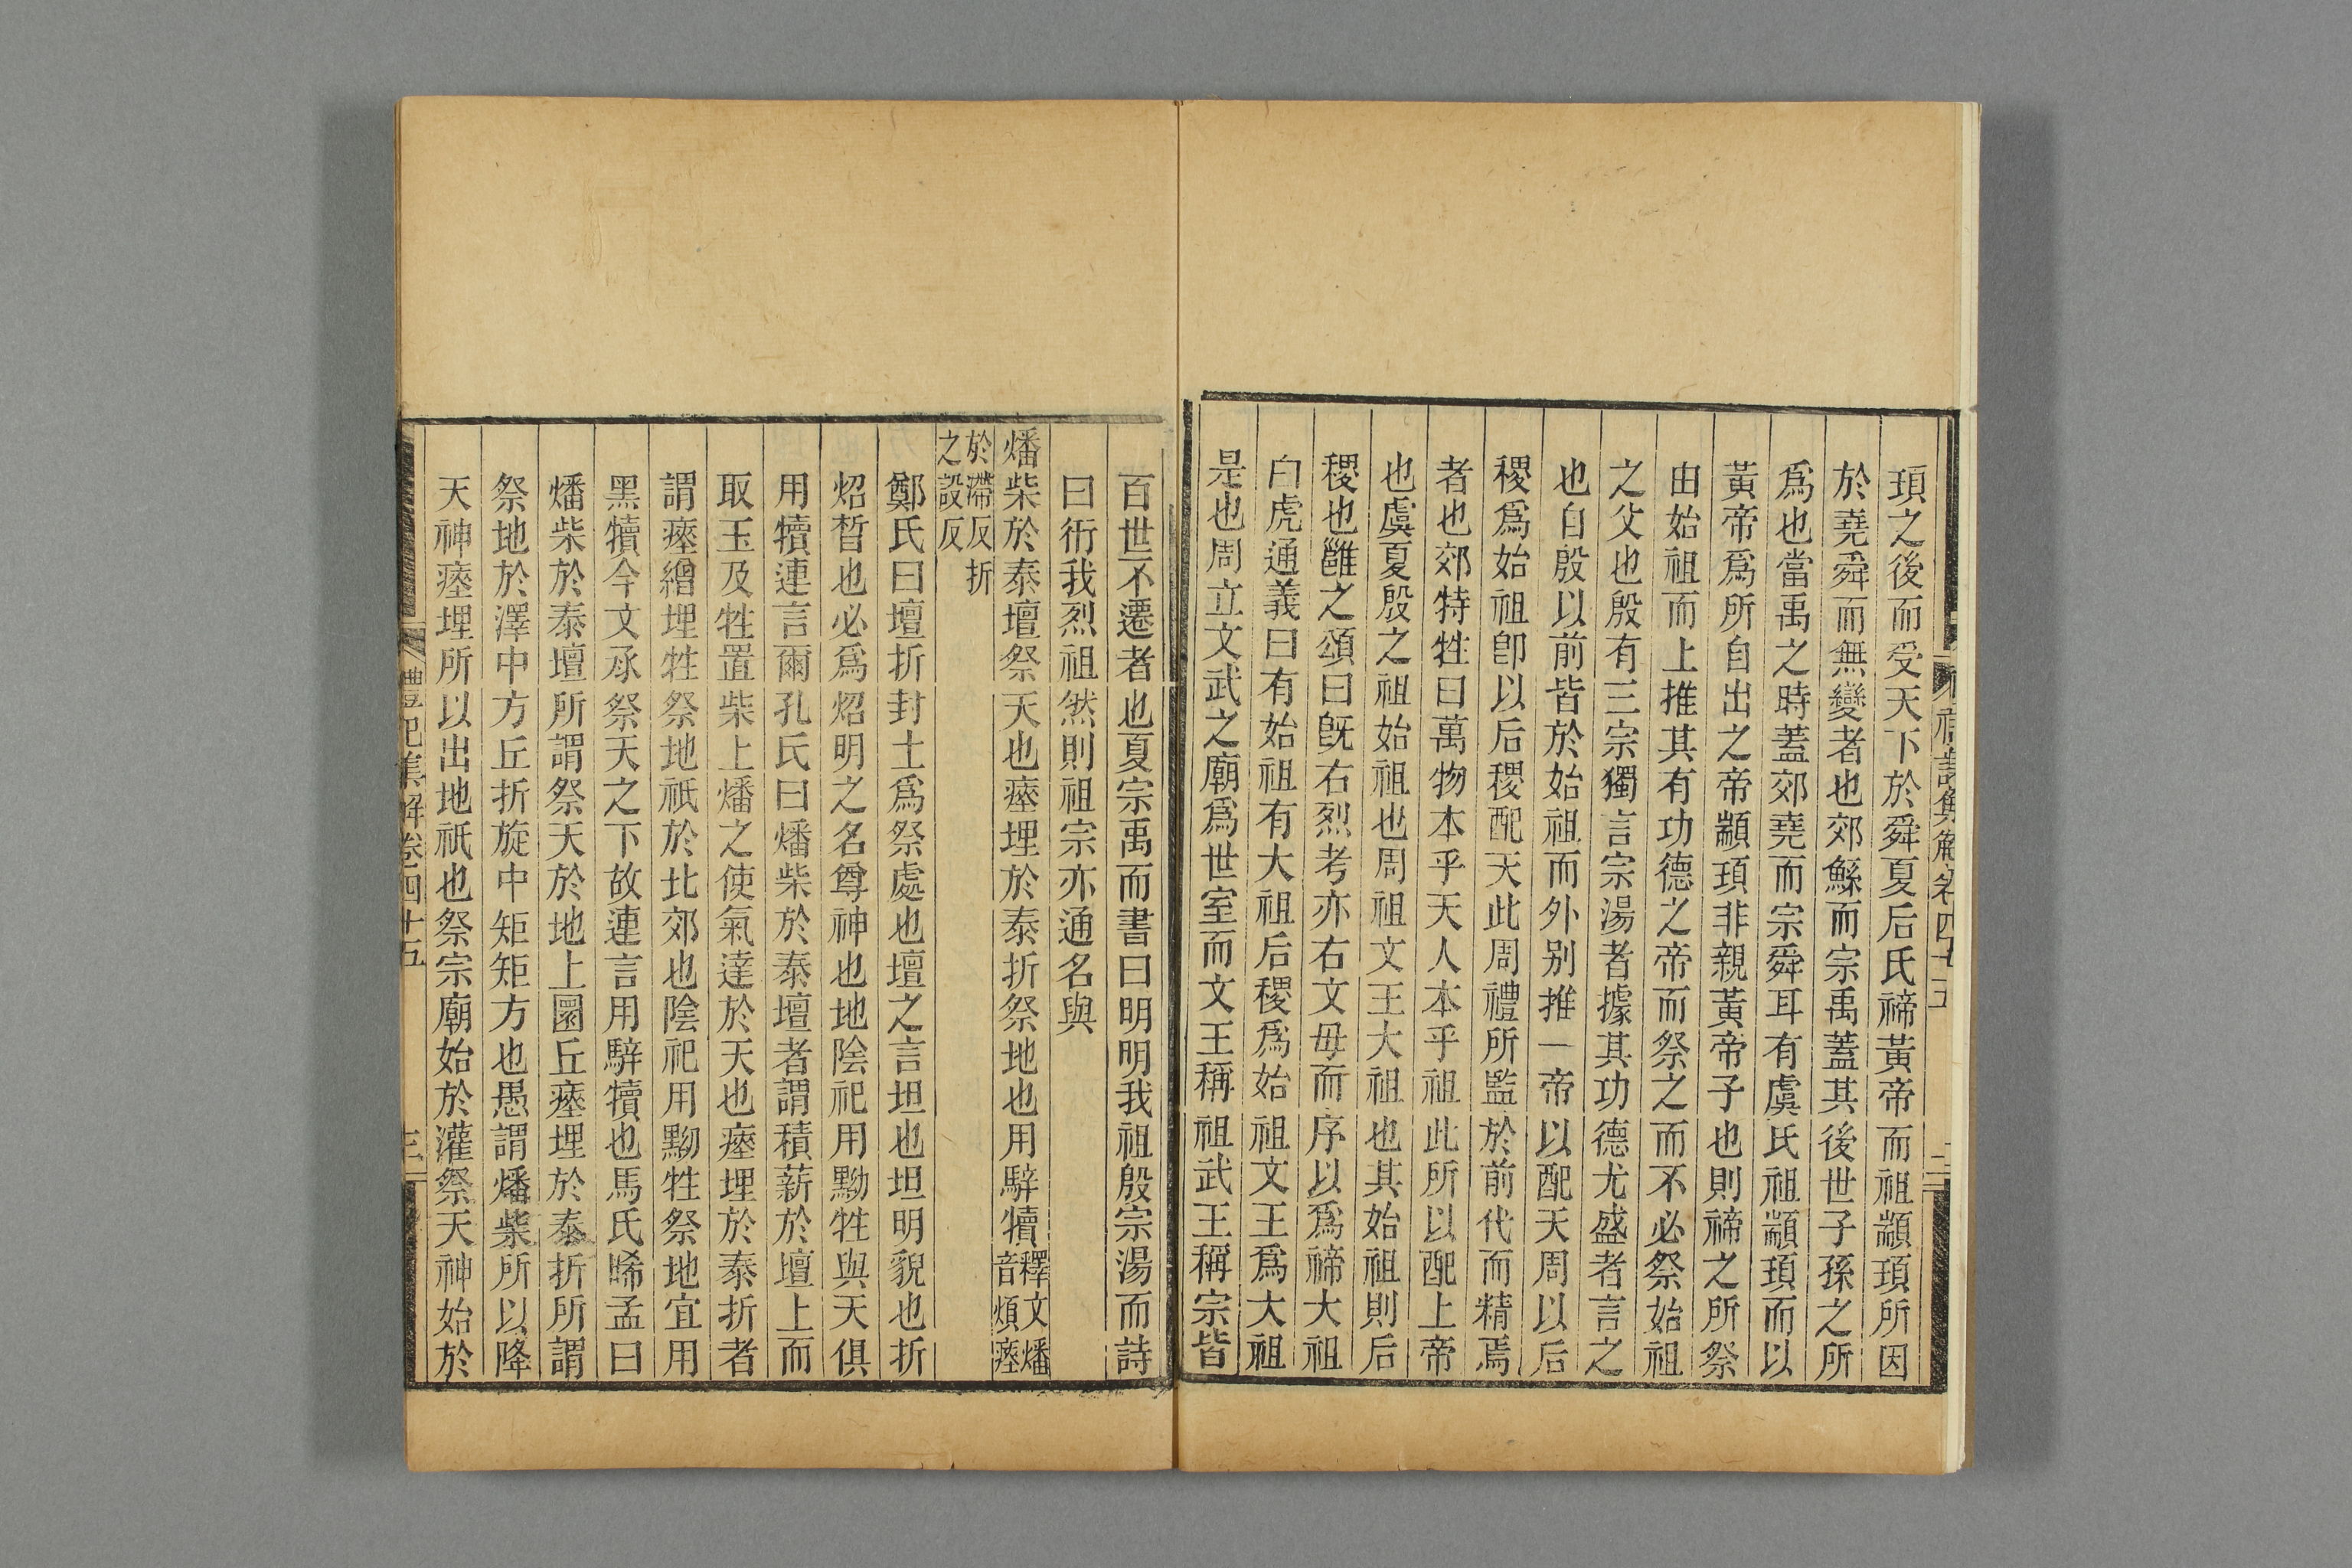 頊之後而受天下於舜夏后氏禘黃帝而祖顓頊所因
於堯舜而無變者也郊鯀而宗禹蓋其後世子孫之所
爲也當禹之時蓋郊堯而宗舜耳有虞氏祖顓頊而以
黃帝爲所自出之帝顓頊非親黃帝子也則禘之所祭
由始祖而上推其有功德之帝而祭之而不必祭始祖
之父也殷有三宗獨言宗湯者據其功德尤盛者言之
也自殷以前皆於始祖而外别推一帝以配天周以后
稷爲始祖卽以后稷配天此周禮所監於前代而精焉
者也郊特牲曰萬物本乎天人本乎祖此所以配上帝
也虞夏殷之祖始祖也周祖文王大祖也其始祖則后
稷也雝之頌曰旣右烈考亦右文母而序以爲禘大祖
白虎通義曰有始祖有大祖后稷爲始祖文王爲大祖
是也周立文武之廟爲世室而文王稱祖武王稱宗皆
百世不遷者也夏宗禹而書曰明明我祖殷宗湯而詩
曰衎我烈祖然則祖宗亦通名與
燔柴於泰壇祭天也瘞埋於泰折祭地也用騂犢釋文燔
音煩瘞
於滯反折
之設反
鄭氏曰壇折封土爲祭處也壇之言坦也坦明貌也折
炤晳也必爲炤明之名尊神也地陰祀用黝牲與天俱
用犢連言爾孔氏曰燔柴於泰壇者謂積薪於壇上而
取玉及牲置柴上燔之使氣達於天也瘞埋於泰折者
謂瘞繒埋牲祭地祇於北郊也陰祀用黝牲祭地宜用
黑犢今文承祭天之下故連言用騂犢也馬氏晞孟曰
燔柴於泰壇所謂祭天於地上圜丘瘞埋於泰折所謂
祭地於澤中方丘折旋中矩矩方也愚謂燔柴所以降
天神瘞埋所以出地祇也祭宗廟始於灌祭天神始於
禮記集解卷四十五
三